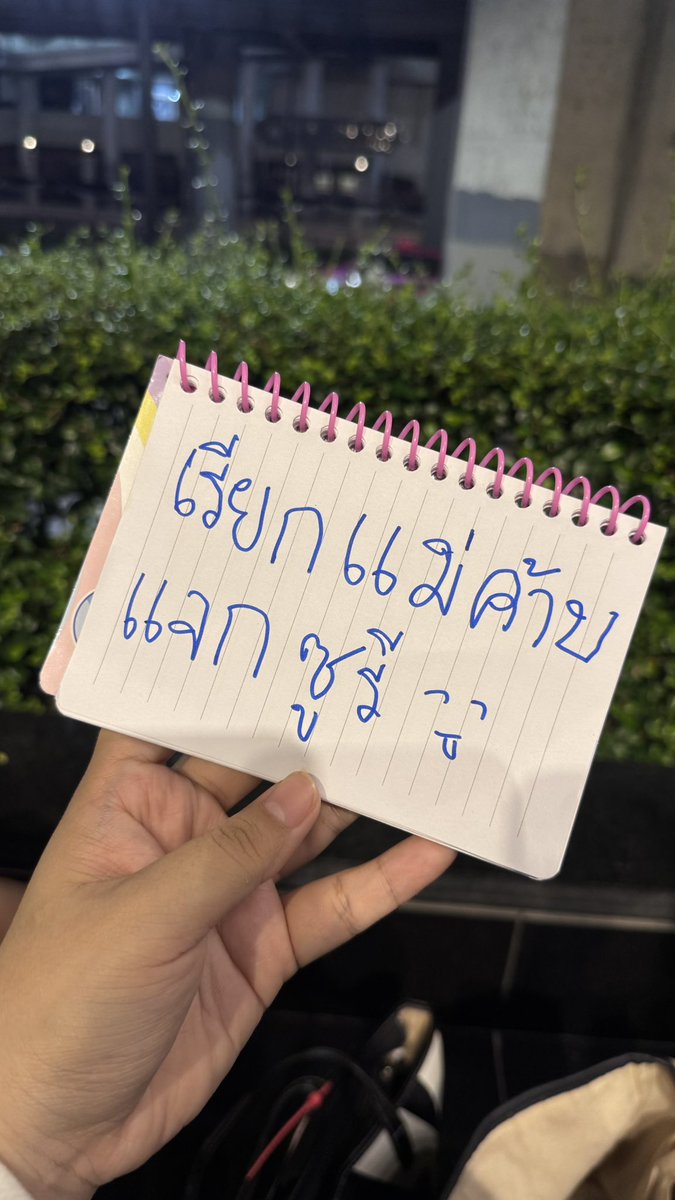 เรียกแม่ค้าบ
แจกซูรี